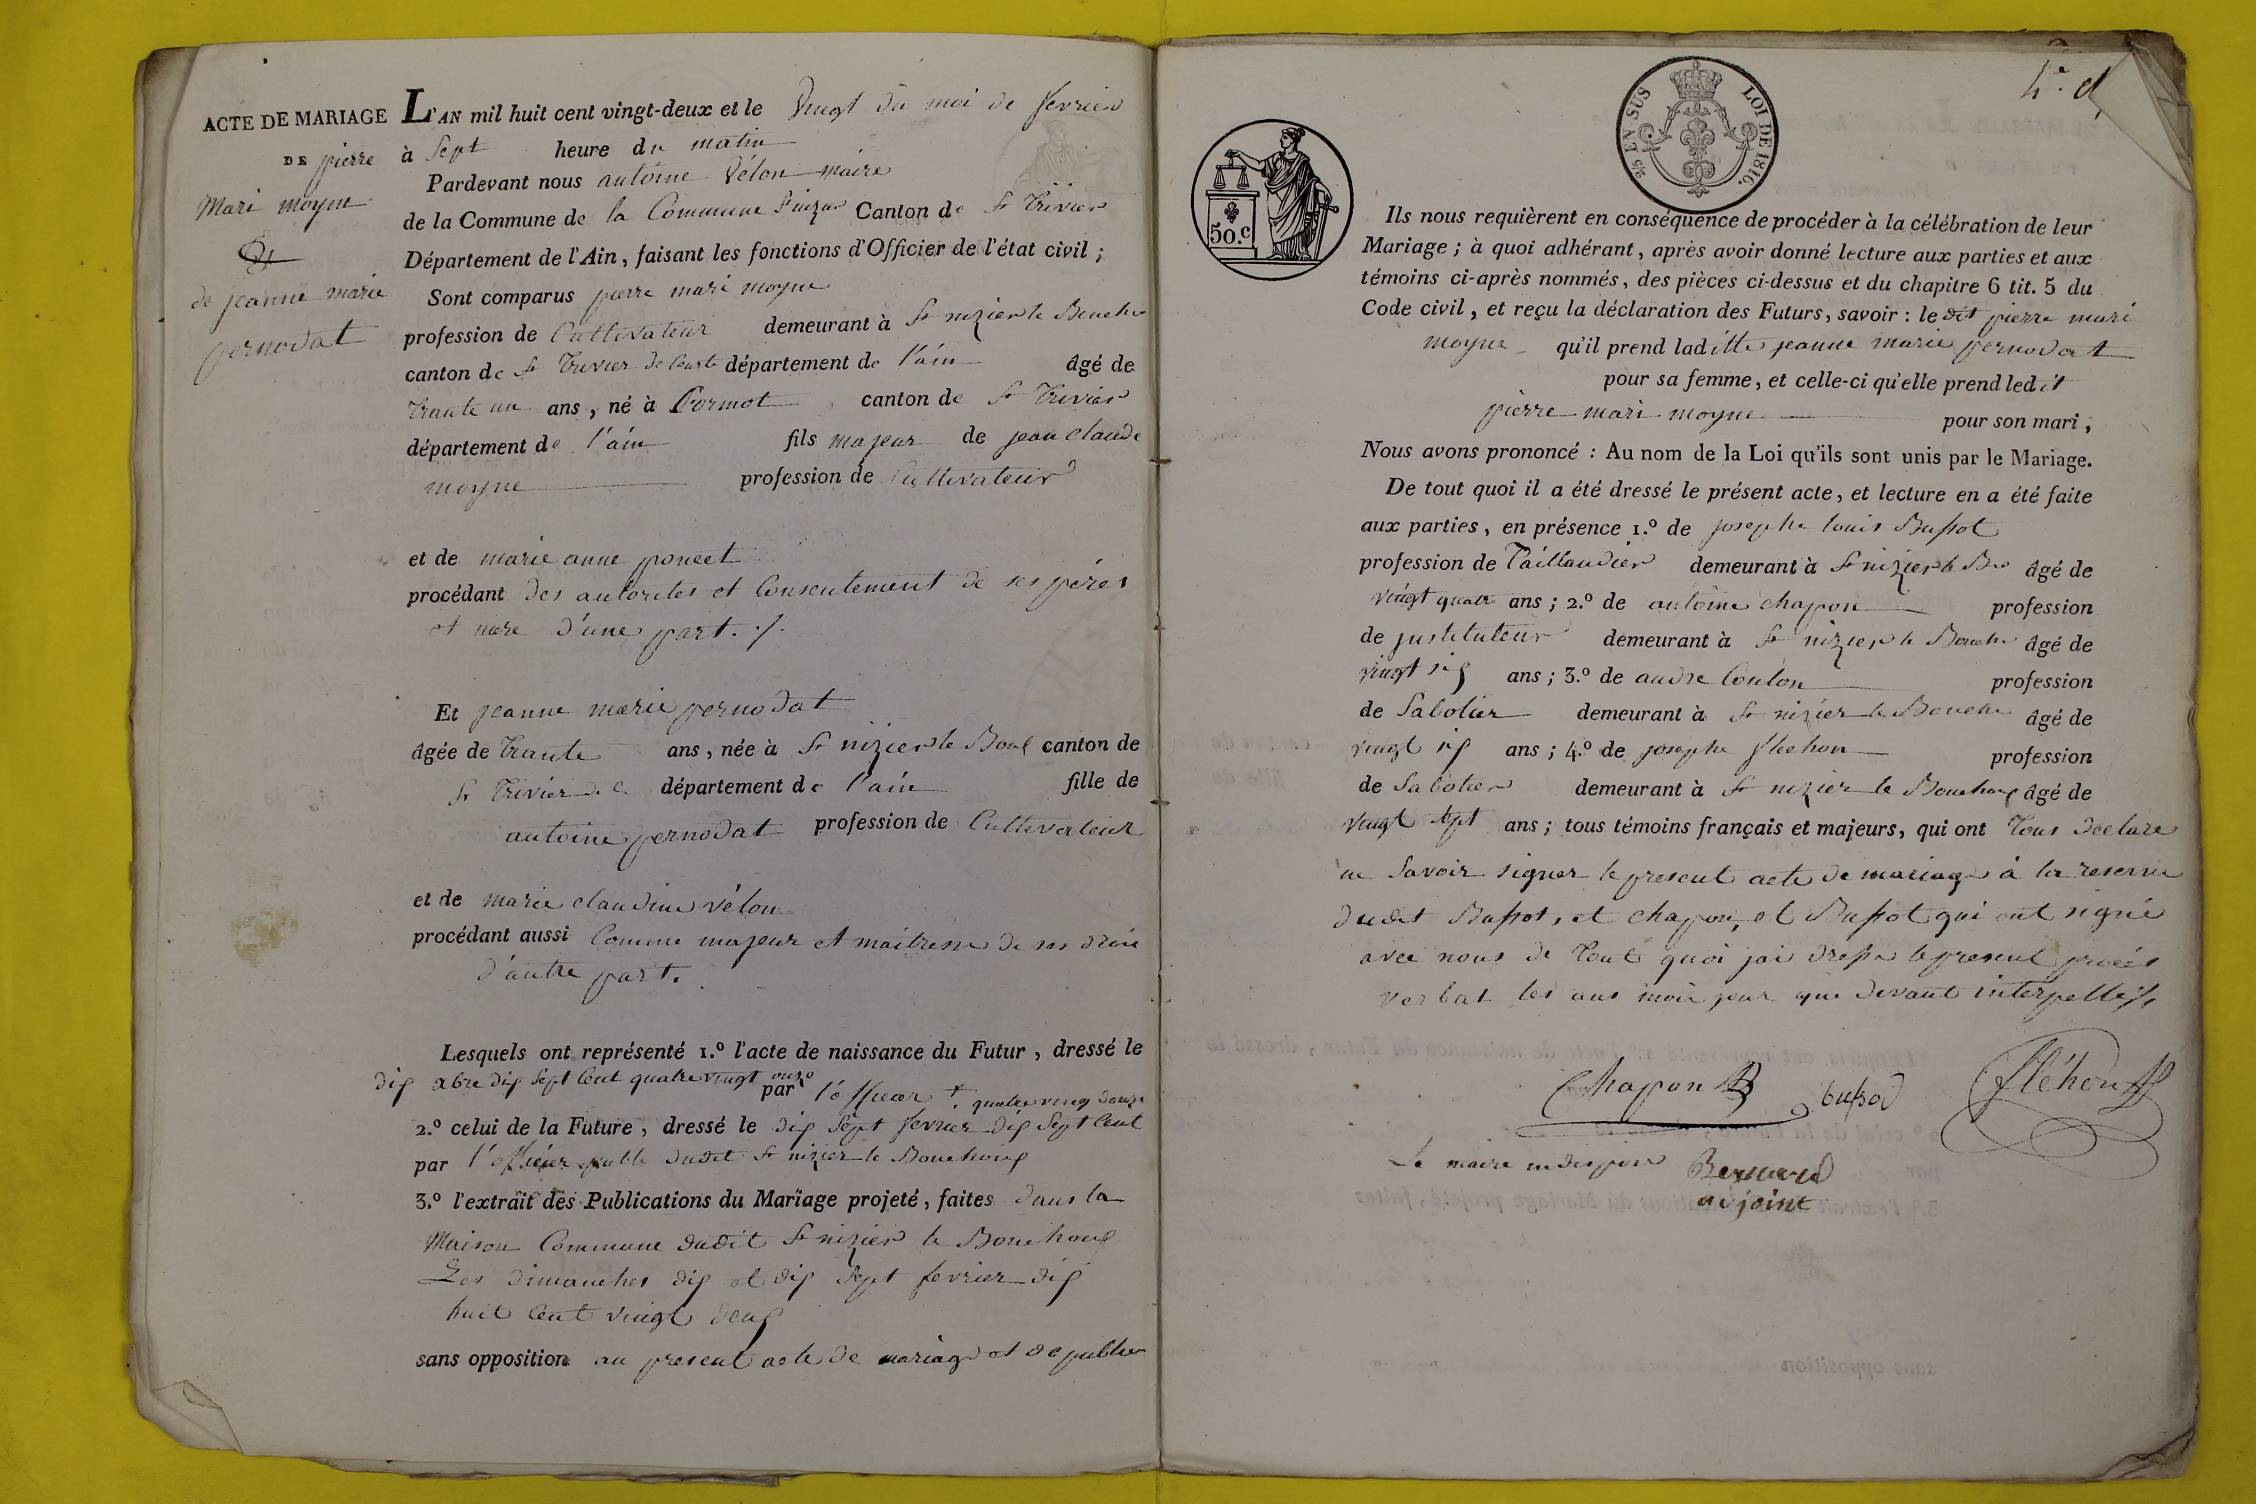 ACTE DE MARIAGE
DE pierre
Mari moyne
&
de jeanne marie
pernodat
L'AN mil huit cent vingt-deux et le vingt du moi de fevrier
à sept heure du matin
Pardevant nous antoine vélon maire
de la Commune de la Commune Canton de St Trivier
Département de l'Ain, faisant les fonctions d'Officier de l'état civil ;
Sont comparus pierre mari moyne
profession de Cultivateur demeurant à St nizier le Bouchu
canton de St Trivier de Courte département de l'ain âgé de
trante un ans, né à Cormot canton de St Trivier
département de l'ain fils majeur de jean claude
moyne profession de Cultivateur
et de marie anne poncet
procédant des autorites et Consentement de ses péres
et mere d'une part. ./.
Et jeanne marie pernodat
âgée de trante ans, née à St nizier le Boux canton de
St Trivier de C département de l'ain fille de
antoine pernodat profession de Cultivateur
et de marie claudine vélon
procédant aussi Comme majeur et maitresse de ses droi
d'autre part.
Lesquels ont représenté 1.º l'acte de naissance du Futur, dressé le
dix xbre dix sept Cent quatre vingt onze
par l'officier + quatre ving douze
2.º celui de la Future, dressé le dix sept fevrier dix sept Cent
par l'officier public dudit St nizier le Bouchoux
3.º l'extrait des Publications du Mariage projeté, faites dans la
Maison Commune dudit St nizier le Bouchoux
Les dimanches dix et dix sept fevrier dix
huit Cent vingt deux
sans opposition au present acte de mariage et de public
50.c
2/5 EN SUS LOI DE 1816.
Ils nous requièrent en conséquence de procéder à la célébration de leur
Mariage ; à quoi adhérant, après avoir donné lecture aux parties et aux
témoins ci-après nommés, des pièces ci-dessus et du chapitre 6 tit. 5 du
Code civil, et reçu la déclaration des Futurs, savoir : le dit pierre mari
moyne qu'il prend laditte jeanne marie pernodat
pour sa femme, et celle-ci qu'elle prend ledit
pierre mari moyne pour son mari ;
Nous avons prononcé : Au nom de la Loi qu'ils sont unis par le Mariage.
De tout quoi il a été dressé le présent acte, et lecture en a été faite
aux parties, en présence 1.º de josephe louis Bussot
profession de Taillandier demeurant à St nizier le Bo âgé de
vingt quatre ans ; 2.º de antoine chapon profession
de justituteur demeurant à St nizier le Bouchu âgé de
vingt six ans ; 3.º de andre Coulon profession
de Sabotier demeurant à St nizier le Bouchu âgé de
vingt six ans ; 4.º de josephe flechon profession
de Sabotier demeurant à St nizier le Bouchoux âgé de
vingt sept ans ; tous témoins français et majeurs, qui ont tous declare
ne Savoir signer le present acte de mariage à la reserve
dudit Bussot, et chapon, et Bussot qui ont signé
avec nous de tout quoi jai dresse le present procés
verbal les ans mois jour que devant interpellés
Chapon Bussod fléhon
Le maire indispose Bernard
adjoint